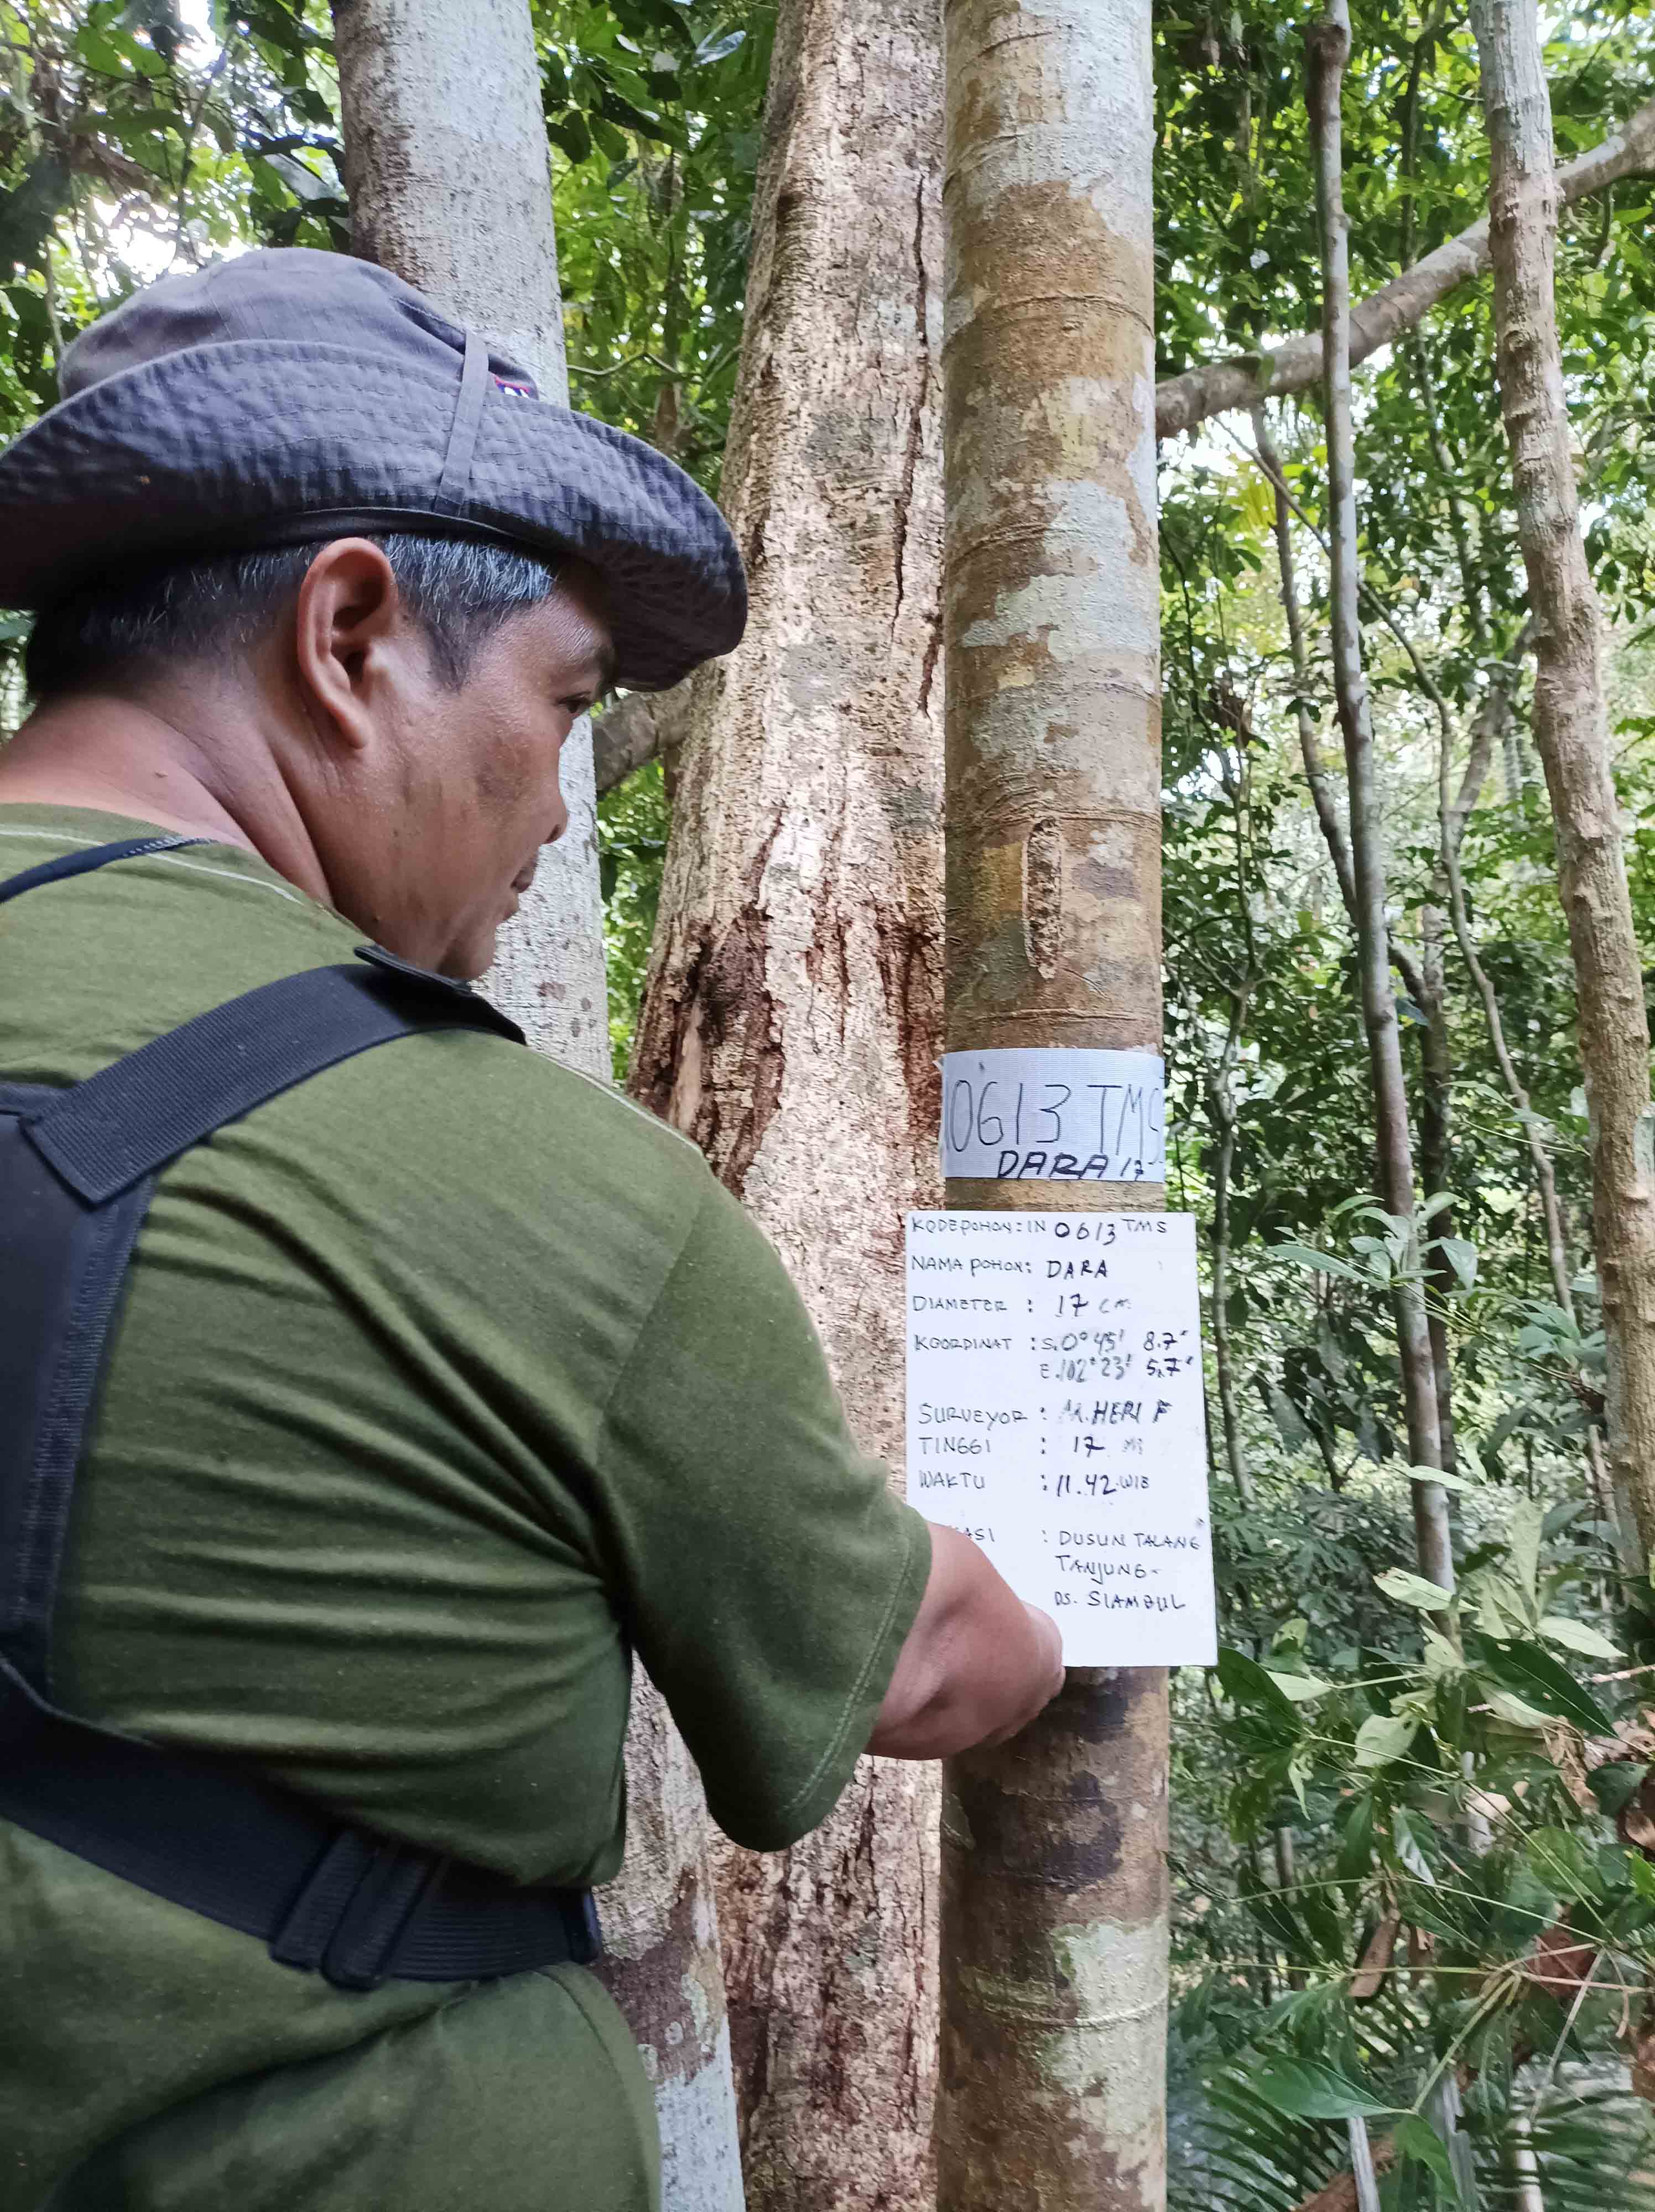 0613 TMS
DARA 17
KODE POHON : IN 0613 TMS
NAMA POHON : DARA
DIAMETER : 17 CM
KOORDINAT : S.0° 45' 8.7"
E.102° 23' 5.7"
SURVEYOR : M.HERI F
TINGGI : 17 M
WAKTU : 11.42 WIB
ASI : DUSUN TALANG
TANJUNG-
DS. SIAMBUL